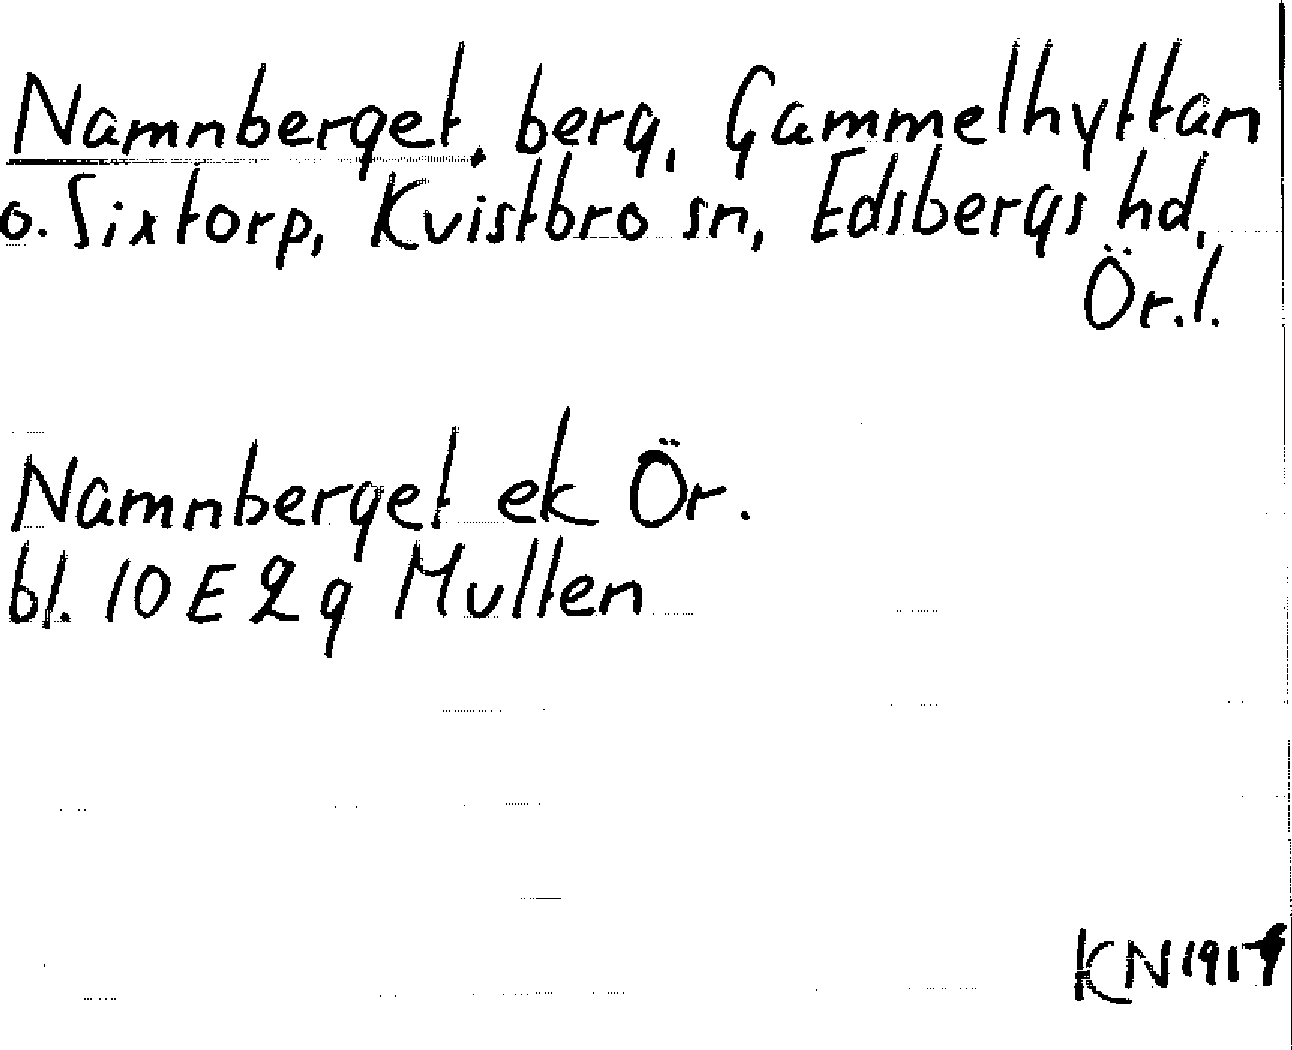 Namnberget, berg, Gammelhyttan
o. Sixtorp, Kvistbro sn, Edsbergs hd,
Ör.l.
Namnberget ek Ör.
bl. 10 E 2 g Mullen
KN